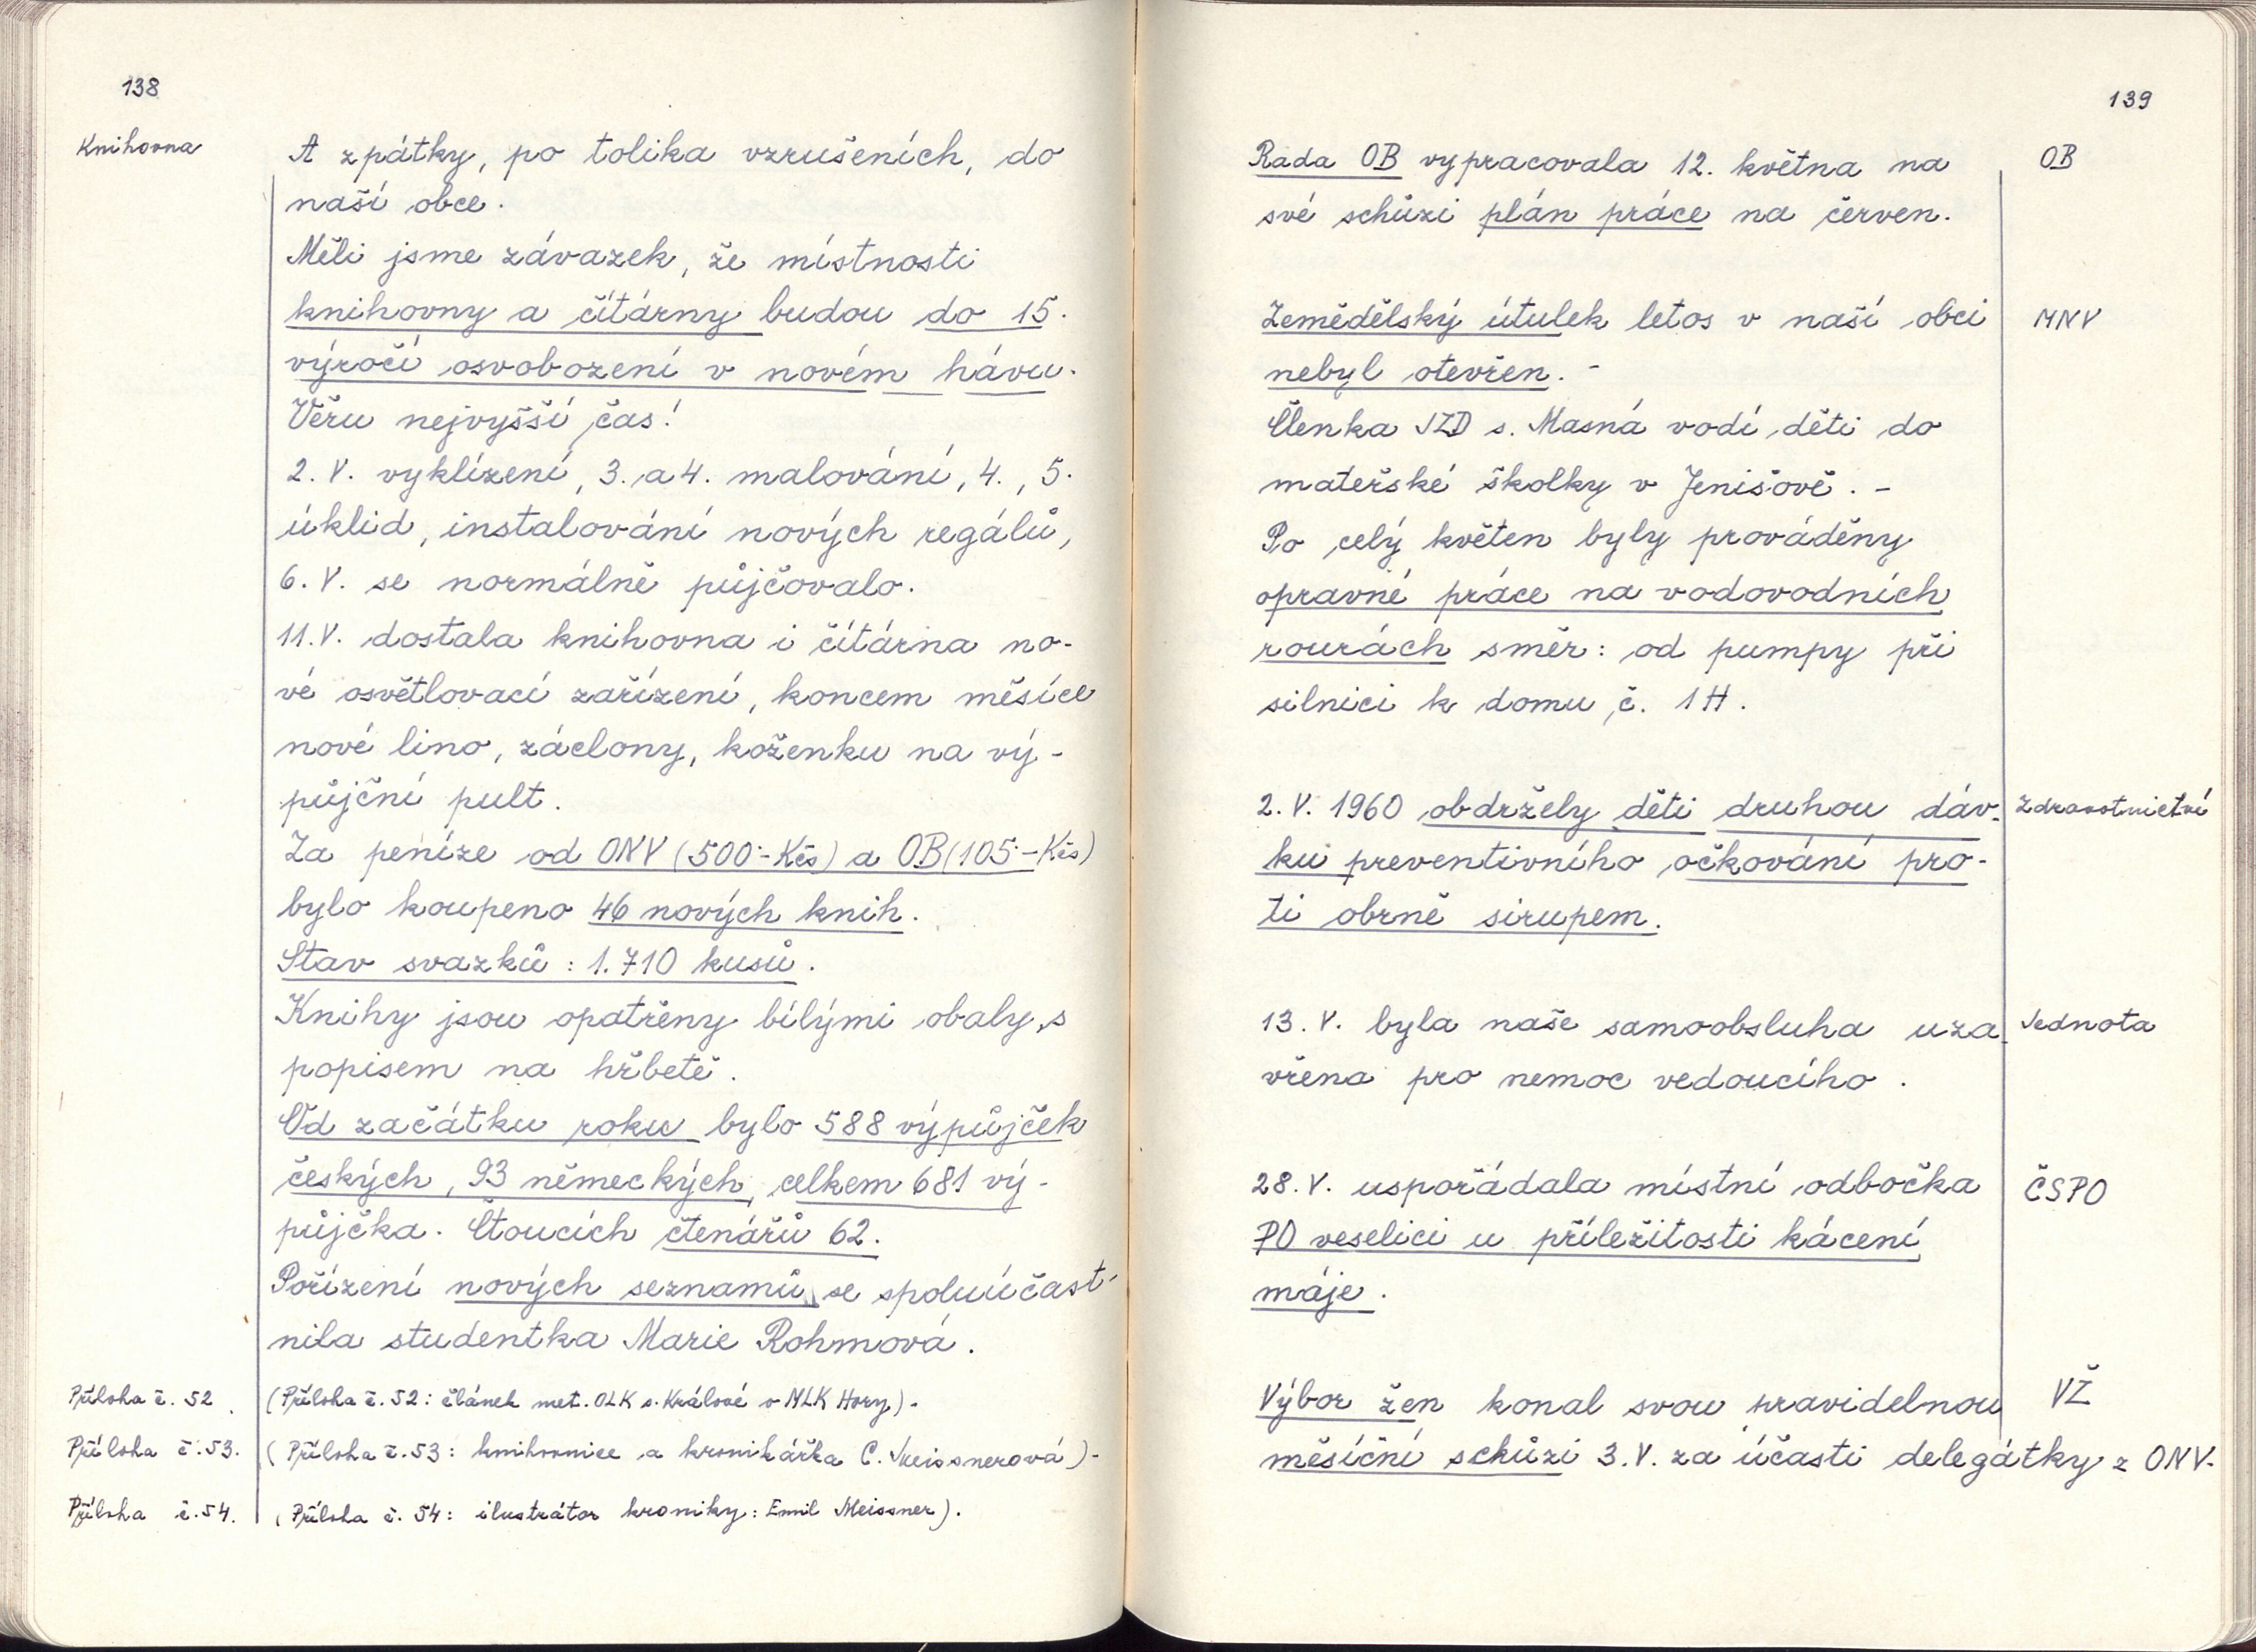 138
Knihovna
A zpátky, po tolika vzrušeních, do
naší obce.
Měli jsme závazek, že místnosti
knihovny a čítárny budou do 15.
výročí osvobození v novém hávu.
Věru nejvyšší čas!
2. V. vyklízení, 3. a 4. malování, 4., 5.
úklid, instalování nových regálů,
6. V. se normálně půjčovalo.
11. V. dostala knihovna i čítárna no-
vé osvětlovací zařízení, koncem měsíce
nové lino, záclony, koženku na vý-
půjční pult.
Za peníze od ONV (500.- Kčs) a OB (105.- Kčs)
bylo koupeno 46 nových knih.
Stav svazků: 1.710 kusů.
Knihy jsou opatřeny bílými obaly s
popisem na hřbetě.
Od začátku roku bylo 588 výpůjček
českých, 93 německých, celkem 681 vý-
půjčka. Čtoucích čtenářů 62.
Pořízení nových seznamů se spoluúčast-
nila studentka Marie Rohmová.
Příloha č. 52 (Příloha č. 52: článek met. OLK s. Králové v MLK Hory).
Příloha č. 53. (Příloha č. 53: knihovnice a kronikářka C. Meissnerová).
Příloha č. 54. (Příloha č. 54: ilustrátor kroniky: Emil Meissner).
139
Rada OB vypracovala 12. května na
OB
své schůzi plán práce na červen.
Zemědělský útulek letos v naší obci
MNV
nebyl otevřen. -
Členka JZD s. Masná vodí děti do
mateřské školky v Jenišově. -
Po celý květen byly prováděny
opravné práce na vodovodních
rourách směr: od pumpy při
silnici k domu č. 1 H.
2. V. 1960 obdržely děti druhou dáv-
Zdravotnictví
ku preventivního očkování pro-
ti obrně sirupem.
13. V. byla naše samoobsluha uza-
Jednota
vřena pro nemoc vedoucího.
28. V. uspořádala místní odbočka
ČSPO
PO veselici u příležitosti kácení
máje.
Výbor žen konal svou pravidelnou
VŽ
měsíční schůzi 3. V. za účasti delegátky z ONV.